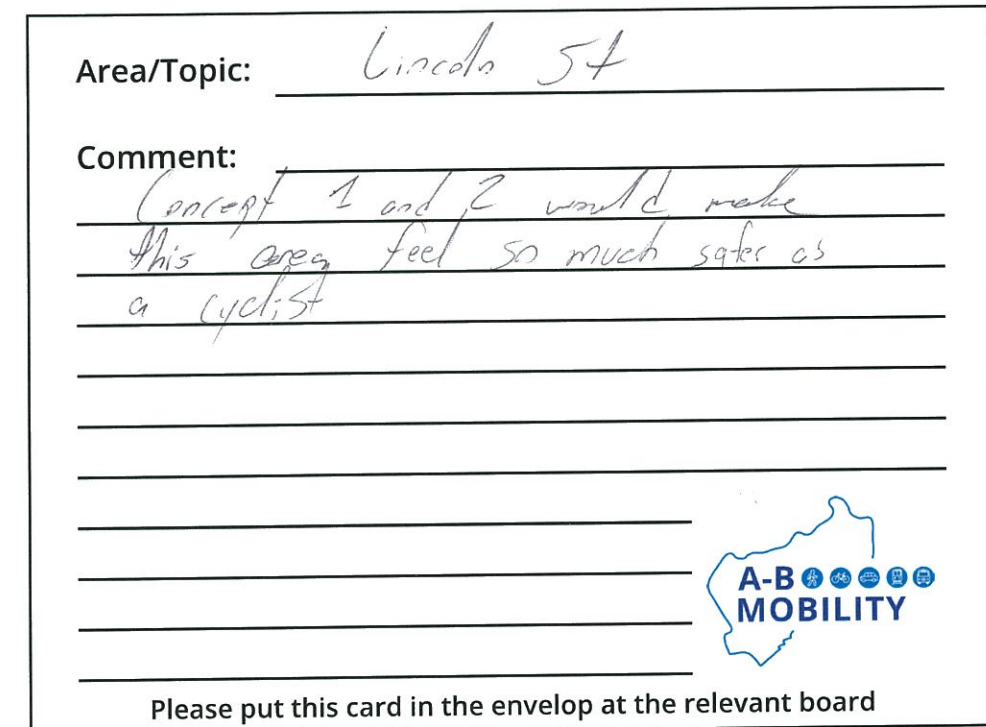 Area/Topic: Lincoln St
Comment:
Concept 1 and 2 would make
this area feel so much safer as
a cyclist
A-B
MOBILITY
Please put this card in the envelop at the relevant board